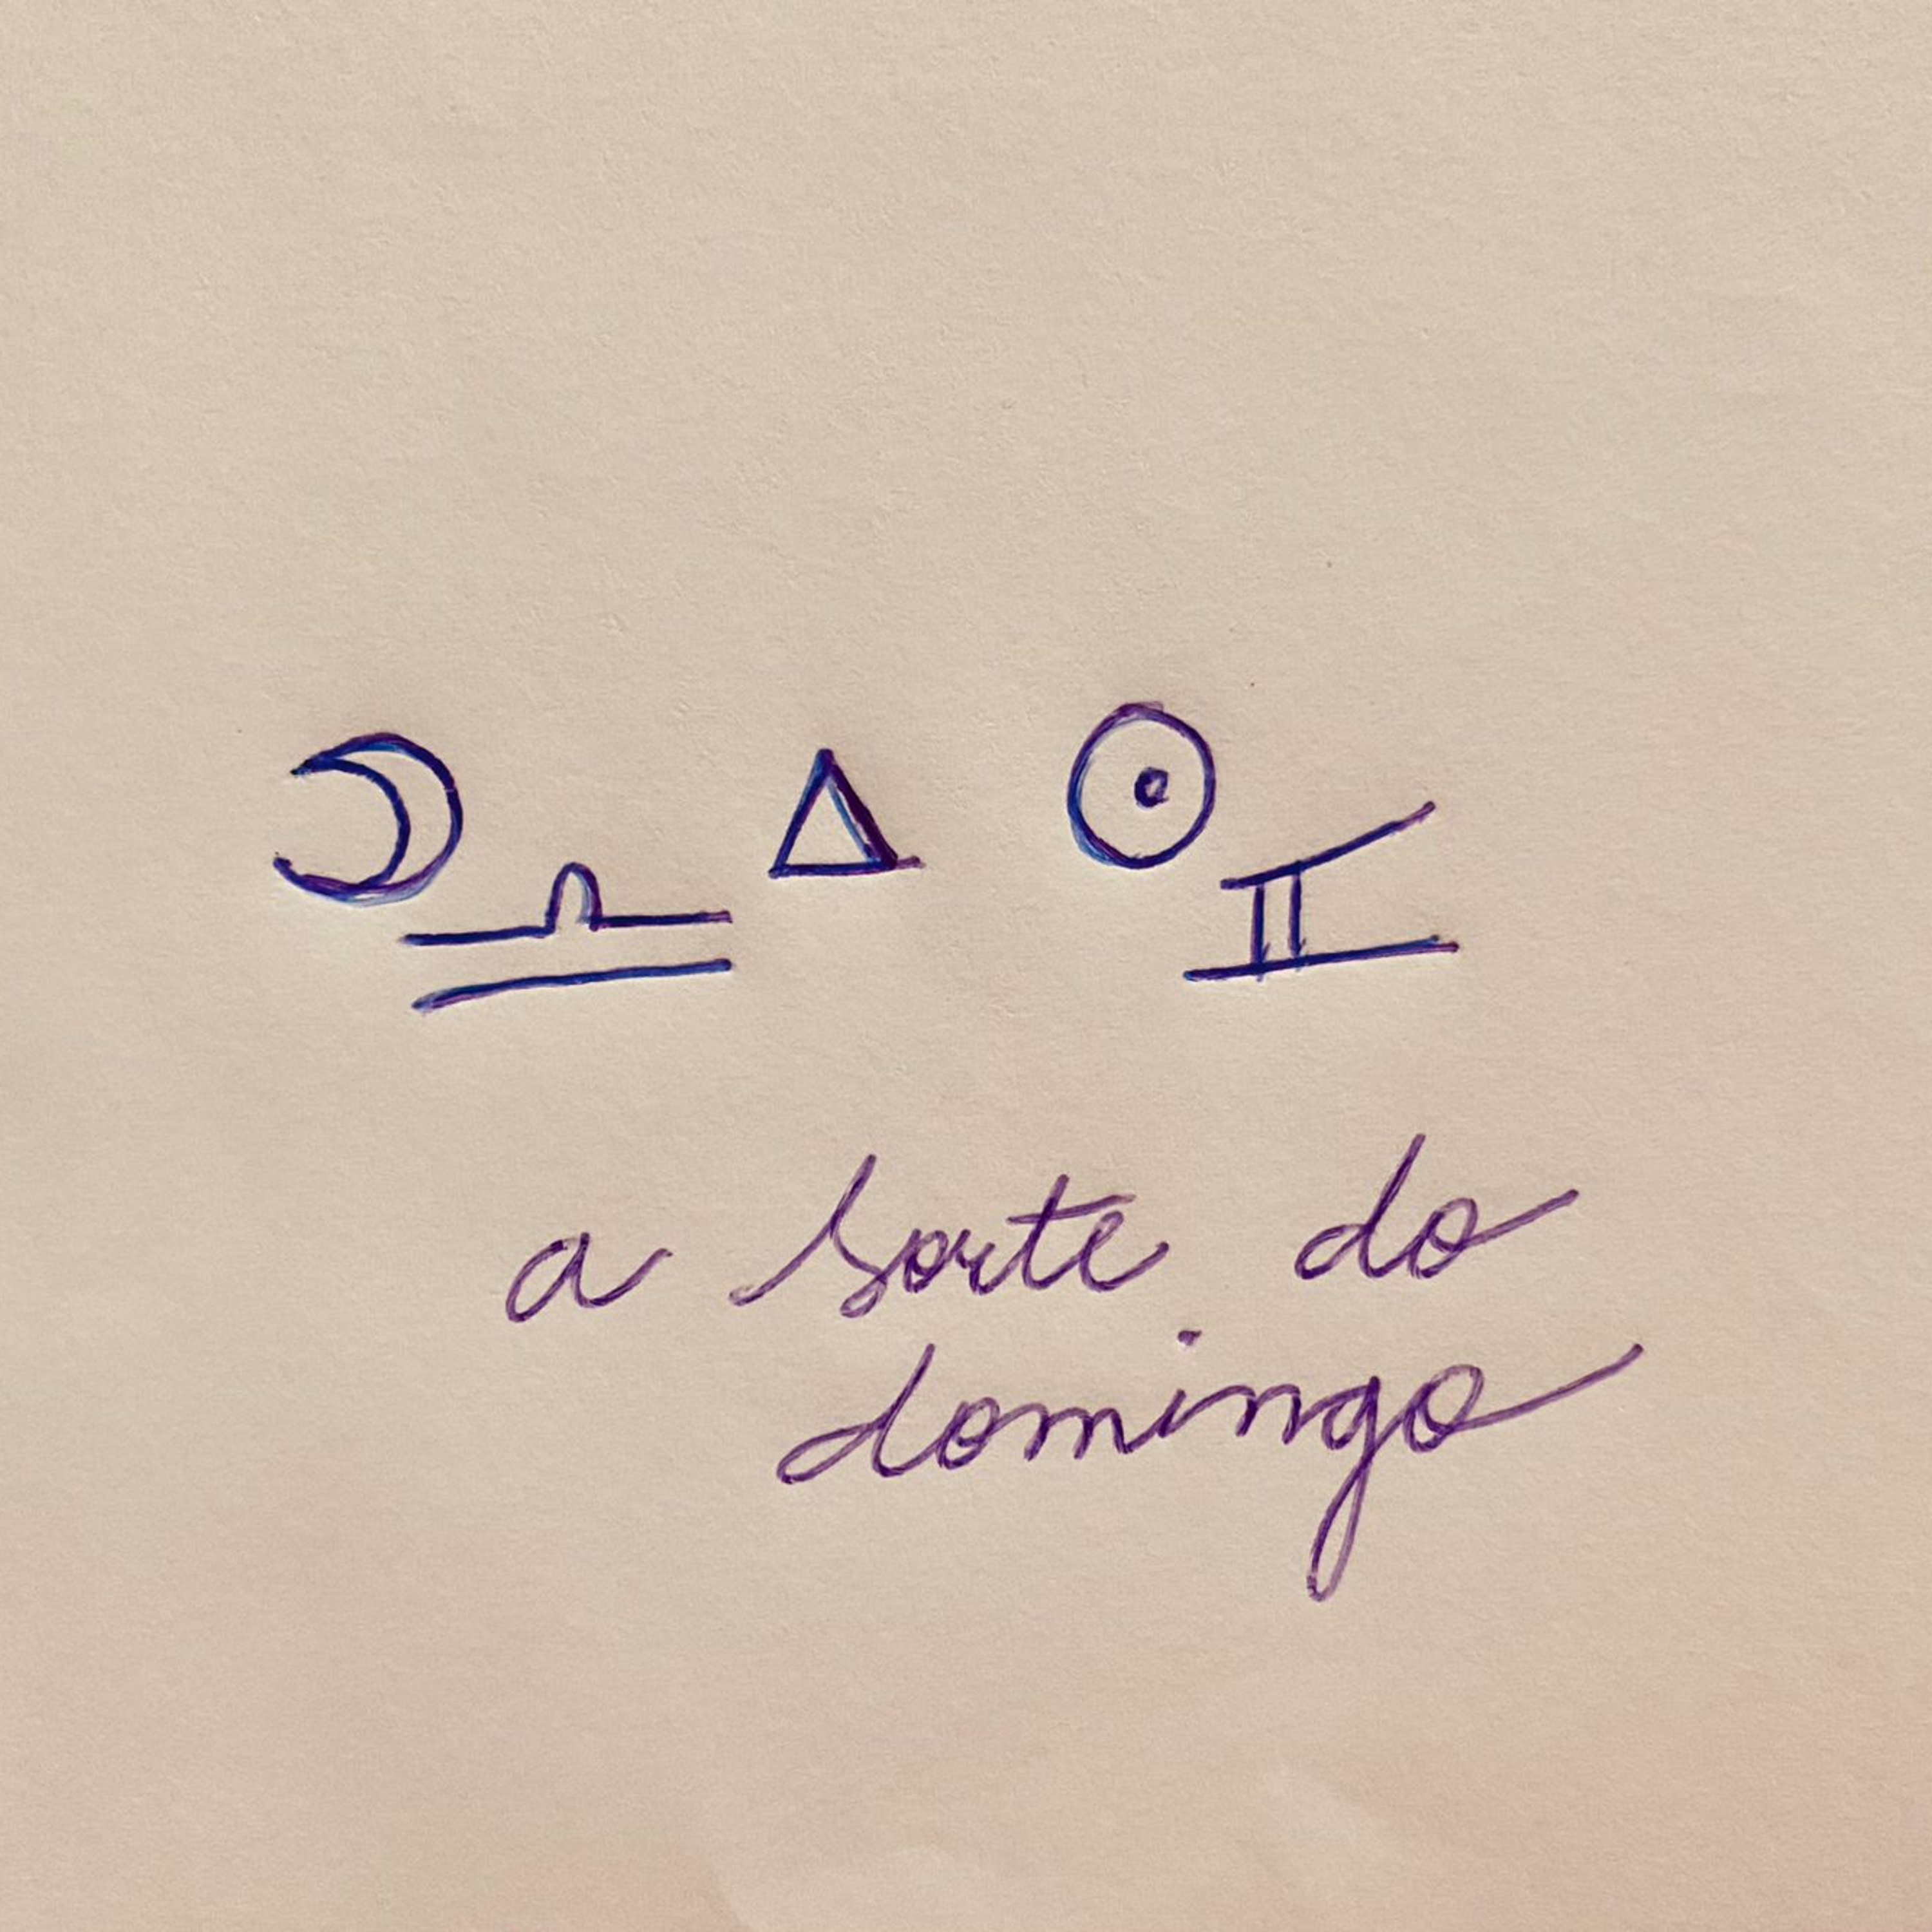 ☽♎ △ ☉♊
a sorte do
domingo